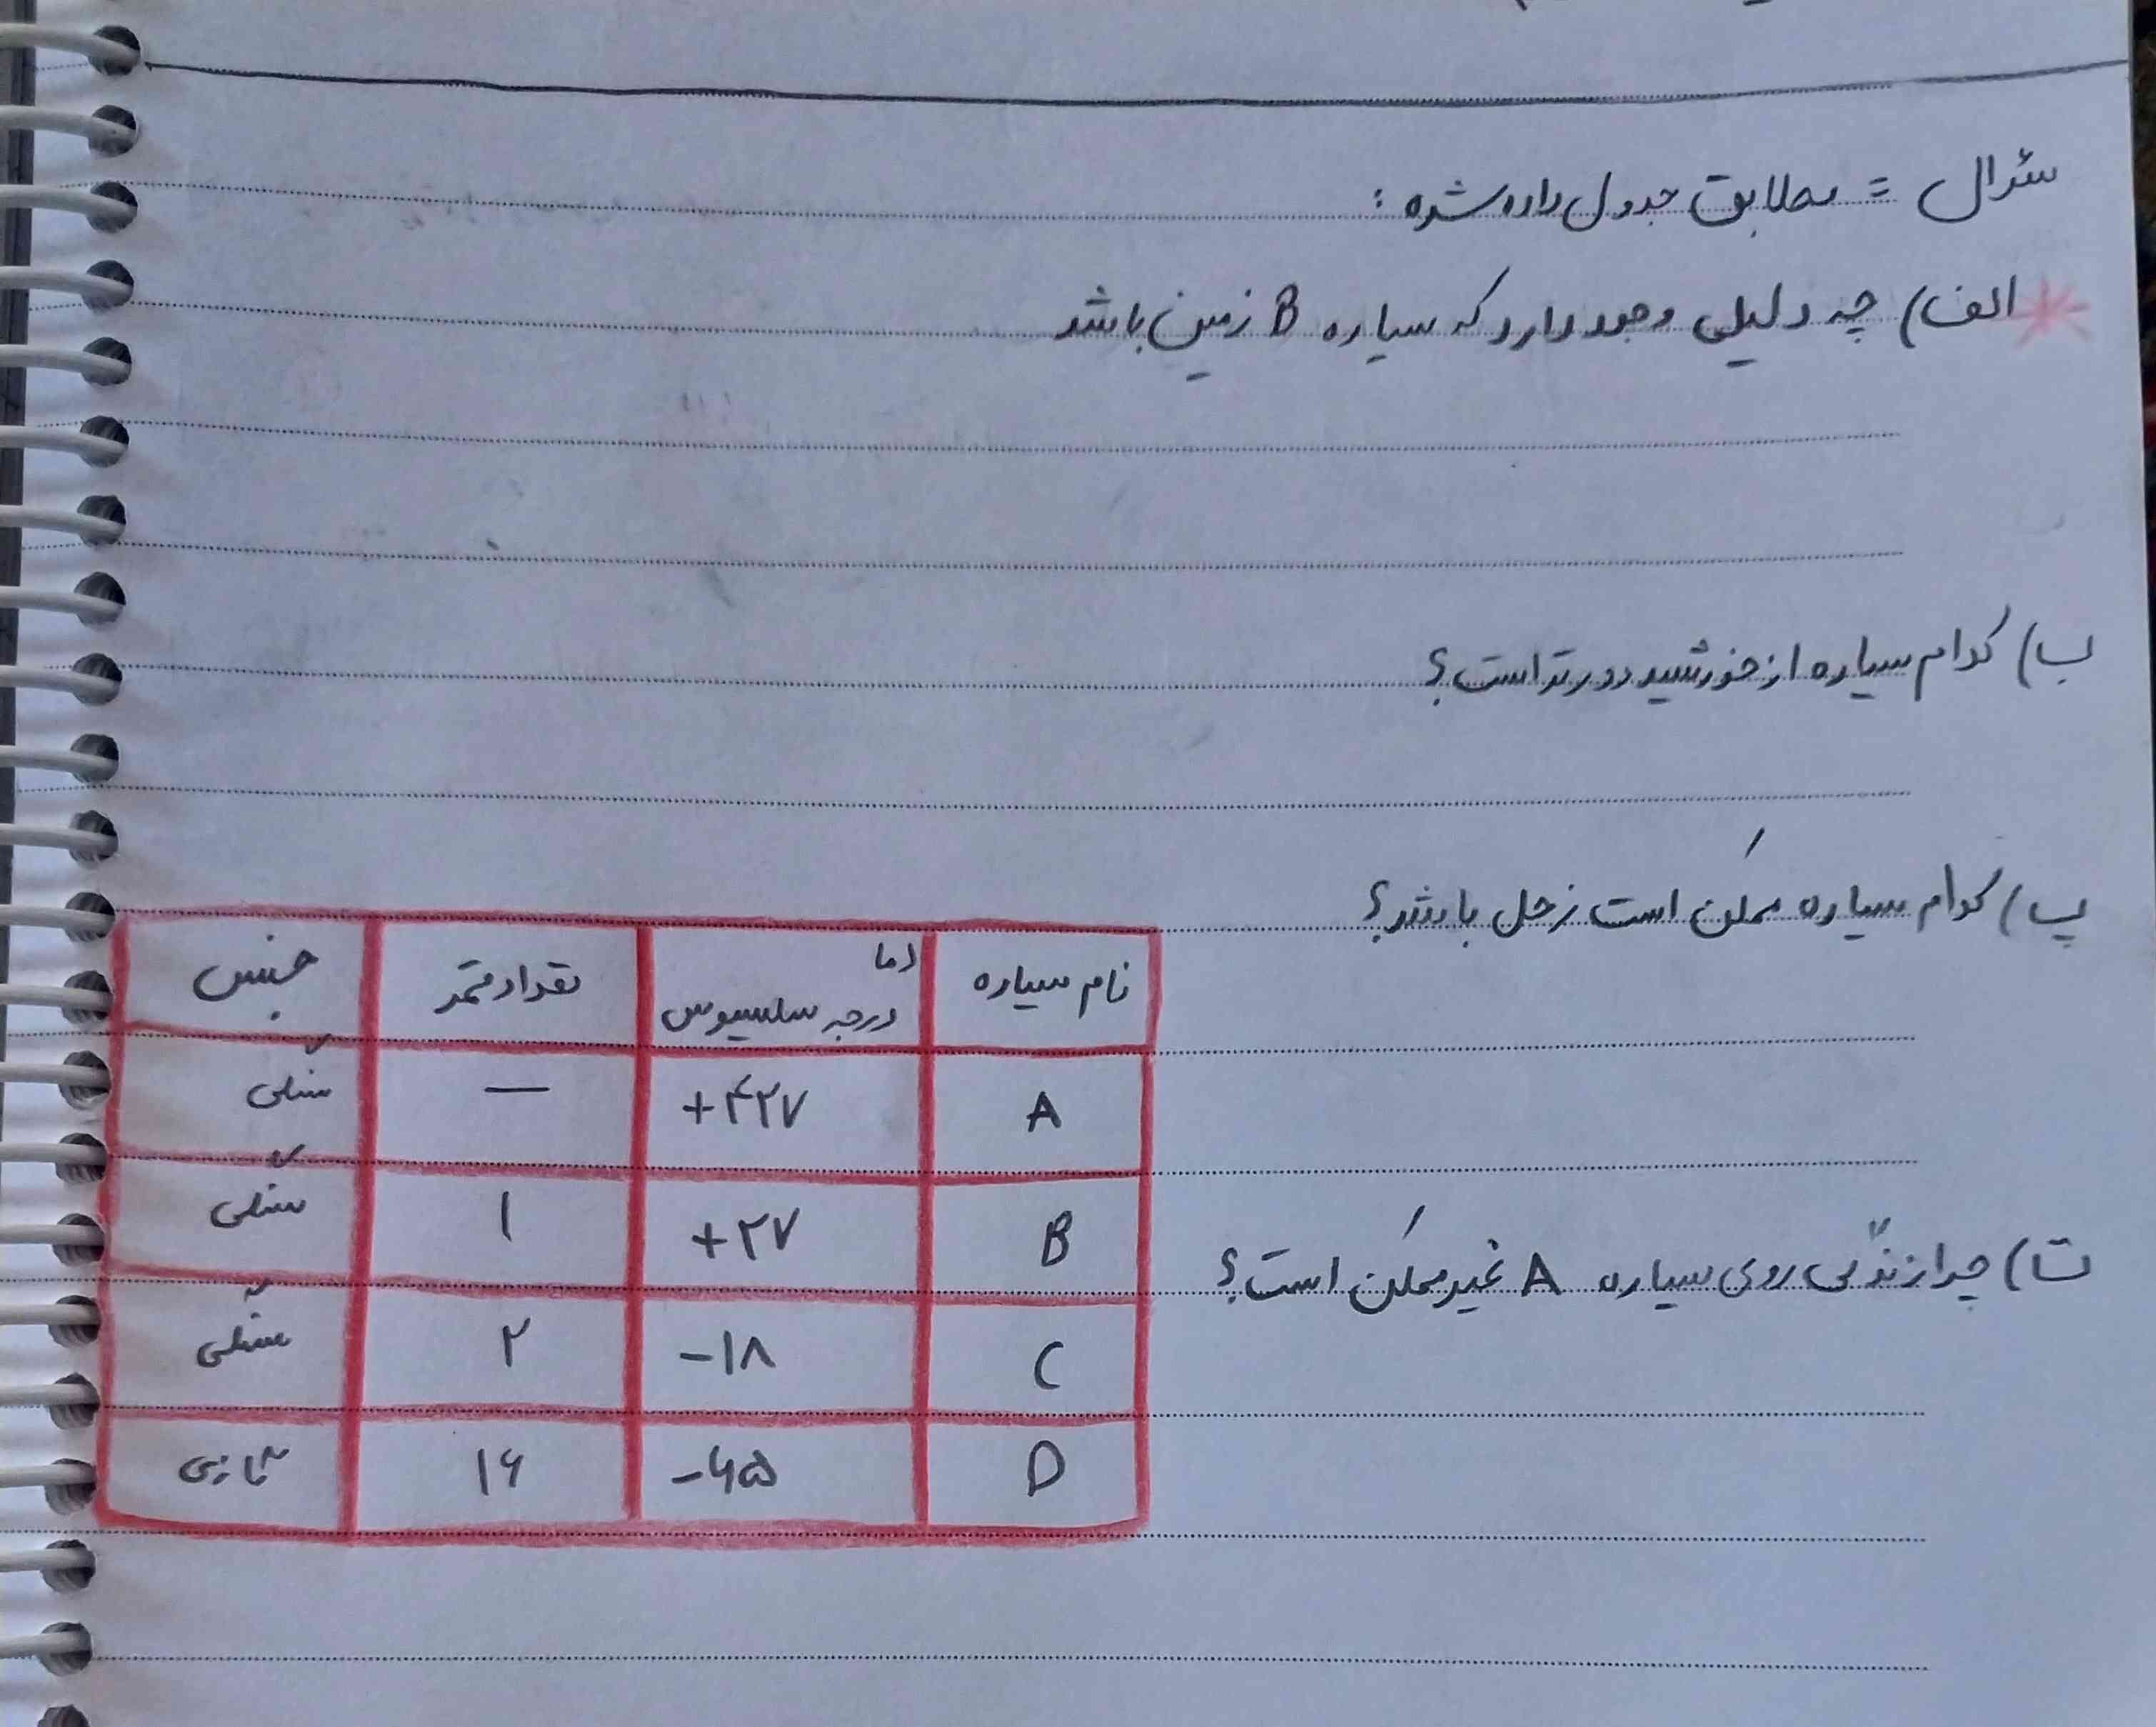 سئوال = مطابق جدول داده شده :
الف) چه دلیلی وجود دارد که سیاره B زمین باشد
ب) کدام سیاره از خورشید دورتر است؟
پ) کدام سیاره ممکن است زحل باشد؟
نام سیاره دما درجه سلسیوس تعداد قمر جنس
A +۴۲۷ — سنگی
B +۲۷ ۱ سنگی
ت) چرا زندگی روی سیاره A غیرممکن است؟
C -۱۸ ۲ سنگی
D -۶۵ ۱۶ گازی